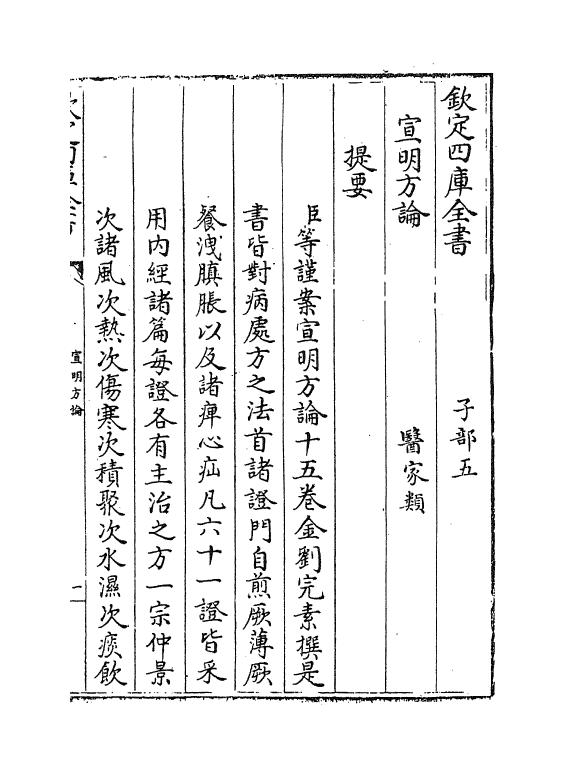 欽定四庫全書　　　子部五
宣明方論　　　醫家類
提要
臣等謹案宣明方論十五卷金劉完素撰是
書皆對病處方之法首諸證門自煎厥薄厥
餐洩䐜脹以及諸痺心疝凡六十一證皆采
用内經諸篇每證各有主治之方一宗仲景
次諸風次熱次傷寒次積聚次水濕次痰飲
宣明方論
一